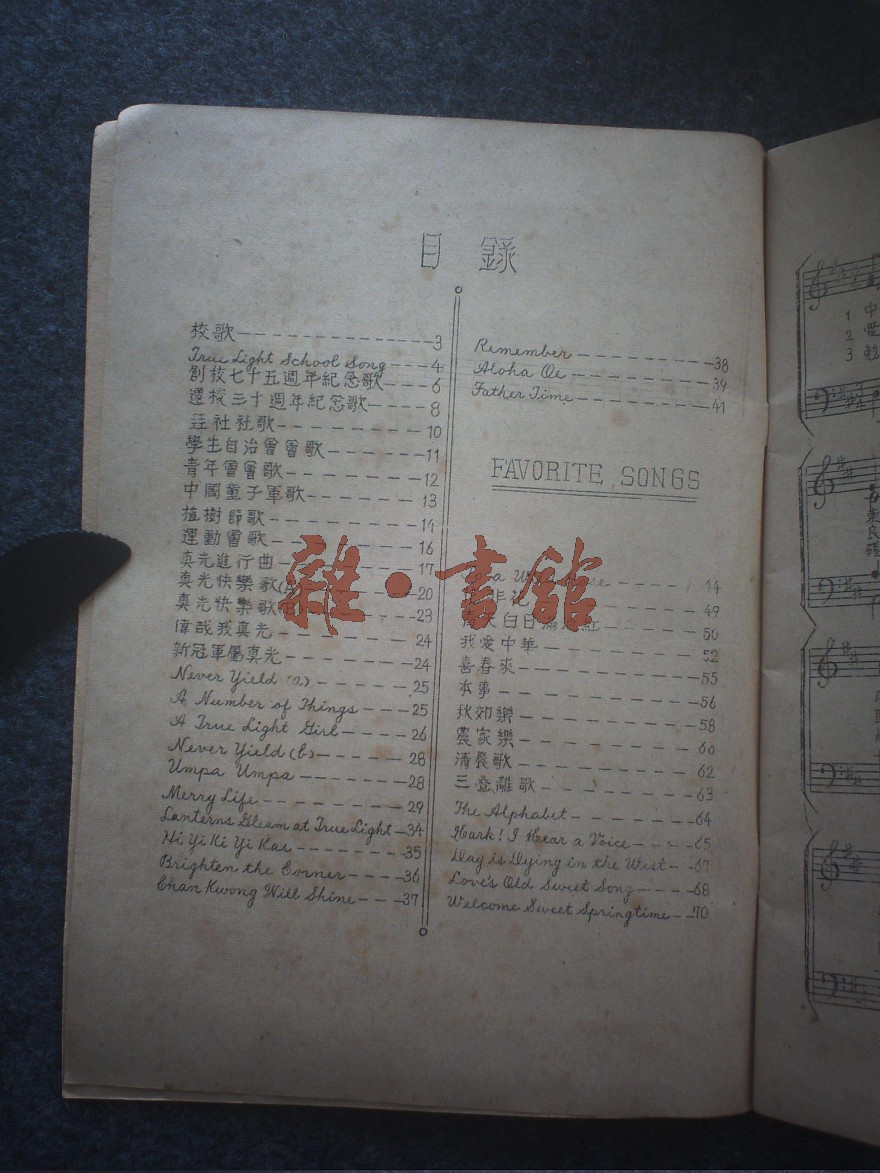 目錄
校歌 3
True Light School Song 4
創校七十五週年紀念歌 6
還校三十週年紀念歌 8
社社歌 10
學生自治會會歌 11
青年會會歌 12
中國童子軍歌 13
植樹節歌 14
運動會歌 16
真光進行曲 17
真光快樂歌 20
真光快樂歌 23
偉哉我真光 24
新冠軍屬真光 24
Never Yield (a) 25
A Number of Things 25
A True Light Girl 26
Never Yield (b) 28
Umpa Umpa 28
Merry Life 29
Lanterns Gleam at True Light 34
Hi Yi Ki Yi Kae 35
Brighten the Corner 36
Chan Kwong Will Shine 37
Remember 38
Aloha Oe 39
Father Time 41
FAVORITE SONGS
44
非花 49
天白日滿地紅 50
我愛中華 52
喜春來 55
本事 56
秋郊樂 58
農家樂 60
清晨歌 62
三疊離歌 63
The Alphabet 64
Hark! I Hear a Voice 65
Day is Dying in the West 67
Love's Old Sweet Song 68
Welcome Sweet Springtime 70
雜·書館
1 中
2 愛
3 勉